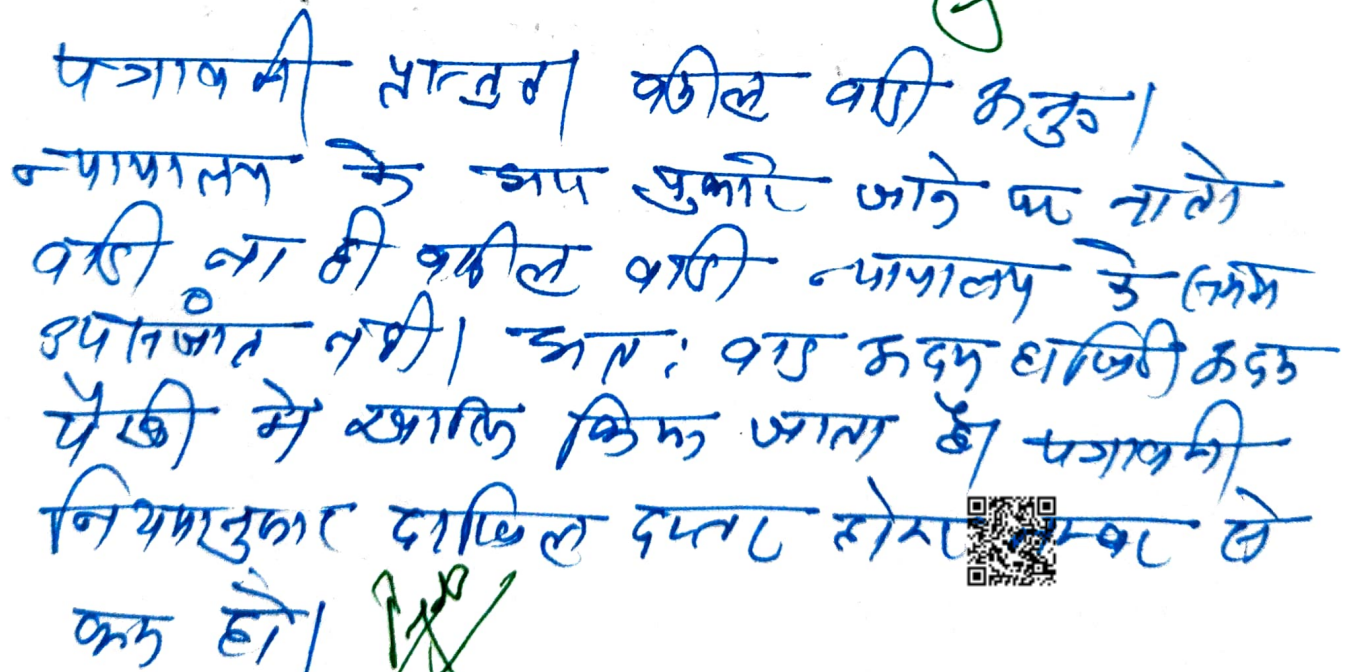 पत्रावली प्रस्तुत। वकील वादी अनु०।
न्यायालय के समय पुकारे जाने पर ना तो
वादी ना ही वकील वादी न्यायालय के समक्ष
उपस्थित नहीं। अतः वाद अदम हाजिरी अदम
पैरवी मे खारिज किया जाता है। पत्रावली
नियमानुसार दाखिल दफ्तर होकर नम्बर से
कम हो।